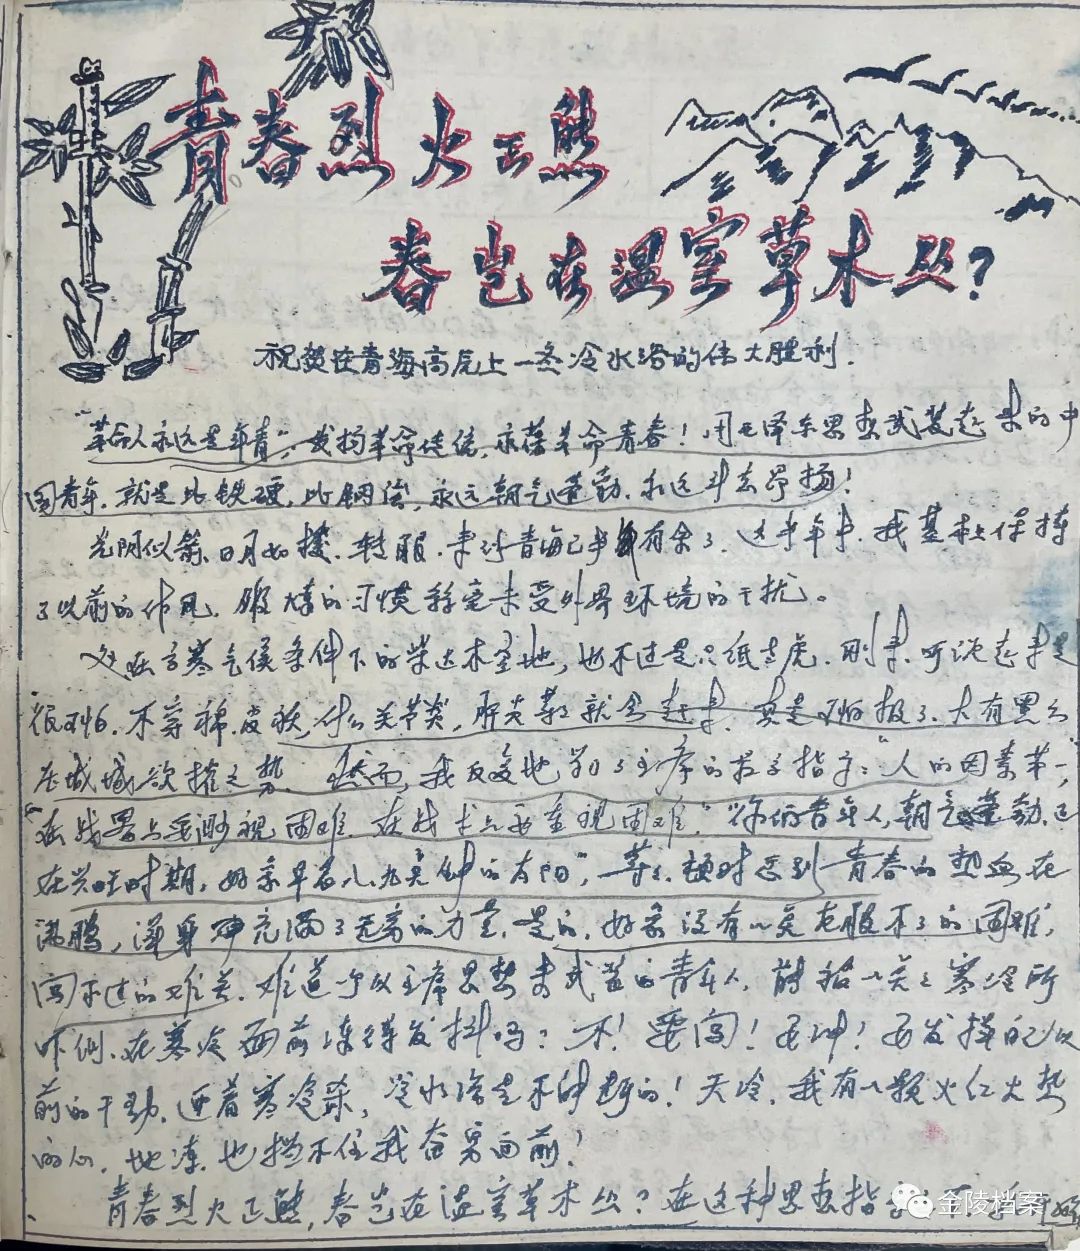 青春烈火正熊
春岂在温室草木丛？
祝贺在青海高原上一冬冷水浴的伟大胜利.
“革命人永远是年青”,发扬革命传统,永葆革命青春！用毛泽东思想武装起来的中
国青年.就是比铁硬,比钢强,永远朝气蓬勃.永远斗志昂扬！
光阴似箭.日月如梭.转眼.来到青海已半年有余了.这半年来.我基本上保持
了以前的作风.锻炼的习惯稳定未受外界环境的干扰。
处在高寒气候条件下的柴达木盆地,也不过是只纸老虎.刚来.听说起来是
很可怕.不穿棉皮袄,什么关节炎,肺炎等就会起来.真是可怕极了.大有黑云
压城城欲摧之势.然而,我反复地学了主席的最高指示：“人的因素第一”,
“在战略上要藐视困难.在战术上要重视困难.”“你们青年人,朝气蓬勃.正
在兴旺时期,好象早晨八、九点钟的太阳”,等等.顿时感到青春的热血在
沸腾,浑身充满了无穷的力量.是的,好象没有一点克服不了的困难,
闯不过的难关.难道一个以主席思想来武装的青年人,能给一点点寒冷所
吓倒.在寒冷面前冻得发抖吗？不！要闯！要冲！要发挥自己以
前的干劲.迎着寒冷杀,冷水浴是不能断的！天冷.我有一颗火红火热
的心.地冻.也挡不住我奋勇向前！
青春烈火正熊,春岂在温室草木丛？在这种思想指
金陵档案